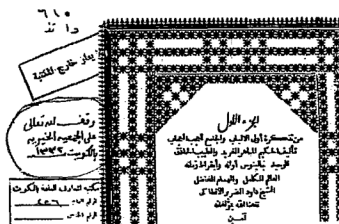 ٦١٠
يعار خارج المكتبة
وقف لله تعالى
على الجمعية الخيرية
بالكويت ١٣٣٢
مكتبة المعارف العامة بالكويت
الجزء الأول
من تذكرة أولى الالباب والجامع للعجب العجاب
تأليف الحكيم الماهر الفريد والطبيب الحاذق
الوحيد جالينوس أوانه وأبقراط زمانه
العالم الكامل والهمام الفاضل
الشيخ داود الضرير الانطاكى
تغمده الله برحمته
آمين